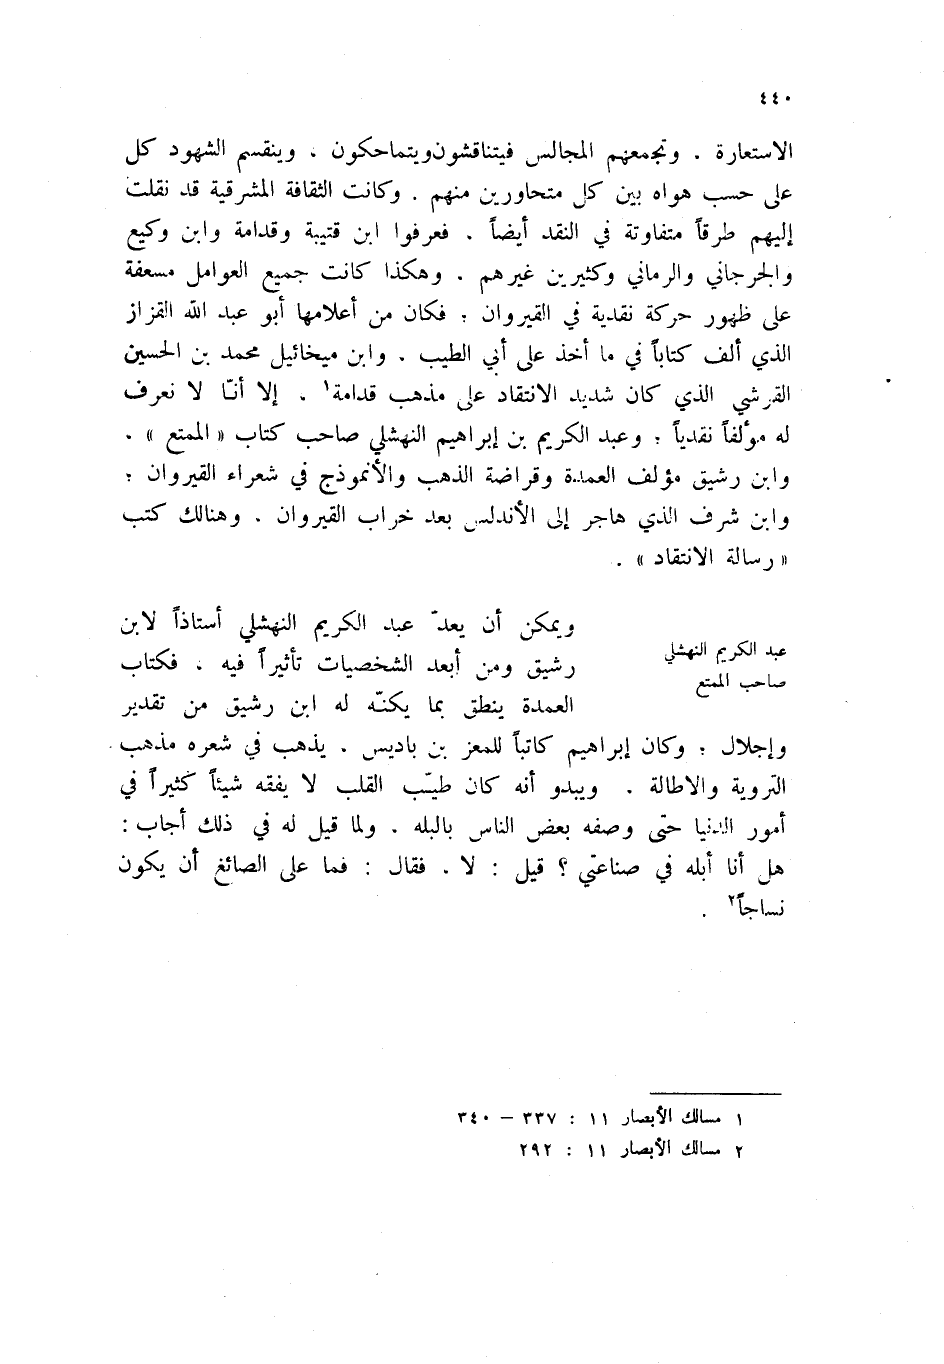 ٤٤٠
الاستعارة . وتجمعهم المجالس فيتناقشون ويتماحكون ، وينقسم الشهود كل
على حسب هواه بين كل متحاورين منهم . وكانت الثقافة المشرقية قد نقلت
إليهم طرقاً متفاوتة في النقد أيضاً . فعرفوا ابن قتيبة وقدامة وابن وكيع
والجرجاني والرماني وكثيرين غيرهم . وهكذا كانت جميع العوامل مسعفة
على ظهور حركة نقدية في القيروان ؛ فكان من أعلامها أبو عبد الله القزاز
الذي ألف كتاباً في ما أخذ على أبي الطيب . وابن ميخائيل محمد بن الحسين
القرشي الذي كان شديد الانتقاد على مذهب قدامة١ . إلا أنّا لا نعرف
له مؤلفاً نقدياً ؛ وعبد الكريم بن إبراهيم النهشلي صاحب كتاب « الممتع » .
وابن رشيق مؤلف العمدة وقراضة الذهب والأنموذج في شعراء القيروان ؛
وابن شرف الذي هاجر إلى الأندلس بعد خراب القيروان . وهنالك كتب
« رسالة الانتقاد » .
عبد الكريم النهشلي
صاحب الممتع
ويمكن أن يعدّ عبد الكريم النهشلي أستاذاً لابن
رشيق ومن أبعد الشخصيات تأثيراً فيه ، فكتاب
العمدة ينطق بما يكنّه له ابن رشيق من تقدير
وإجلال ؛ وكان إبراهيم كاتباً للمعز بن باديس . يذهب في شعره مذهب
التروية والاطالة . ويبدو أنه كان طيّب القلب لا يفقه شيئاً كثيراً في
أمور الدنيا حتّى وصفه بعض الناس بالبله . ولما قيل له في ذلك أجاب :
هل أنا أبله في صناعتي ؟ قيل : لا . فقال : فما على الصائغ أن يكون
نساجاً٢ .
١ مسالك الأبصار ١١ : ٣٣٧ – ٣٤٠
٢ مسالك الأبصار ١١ : ٢٩٢